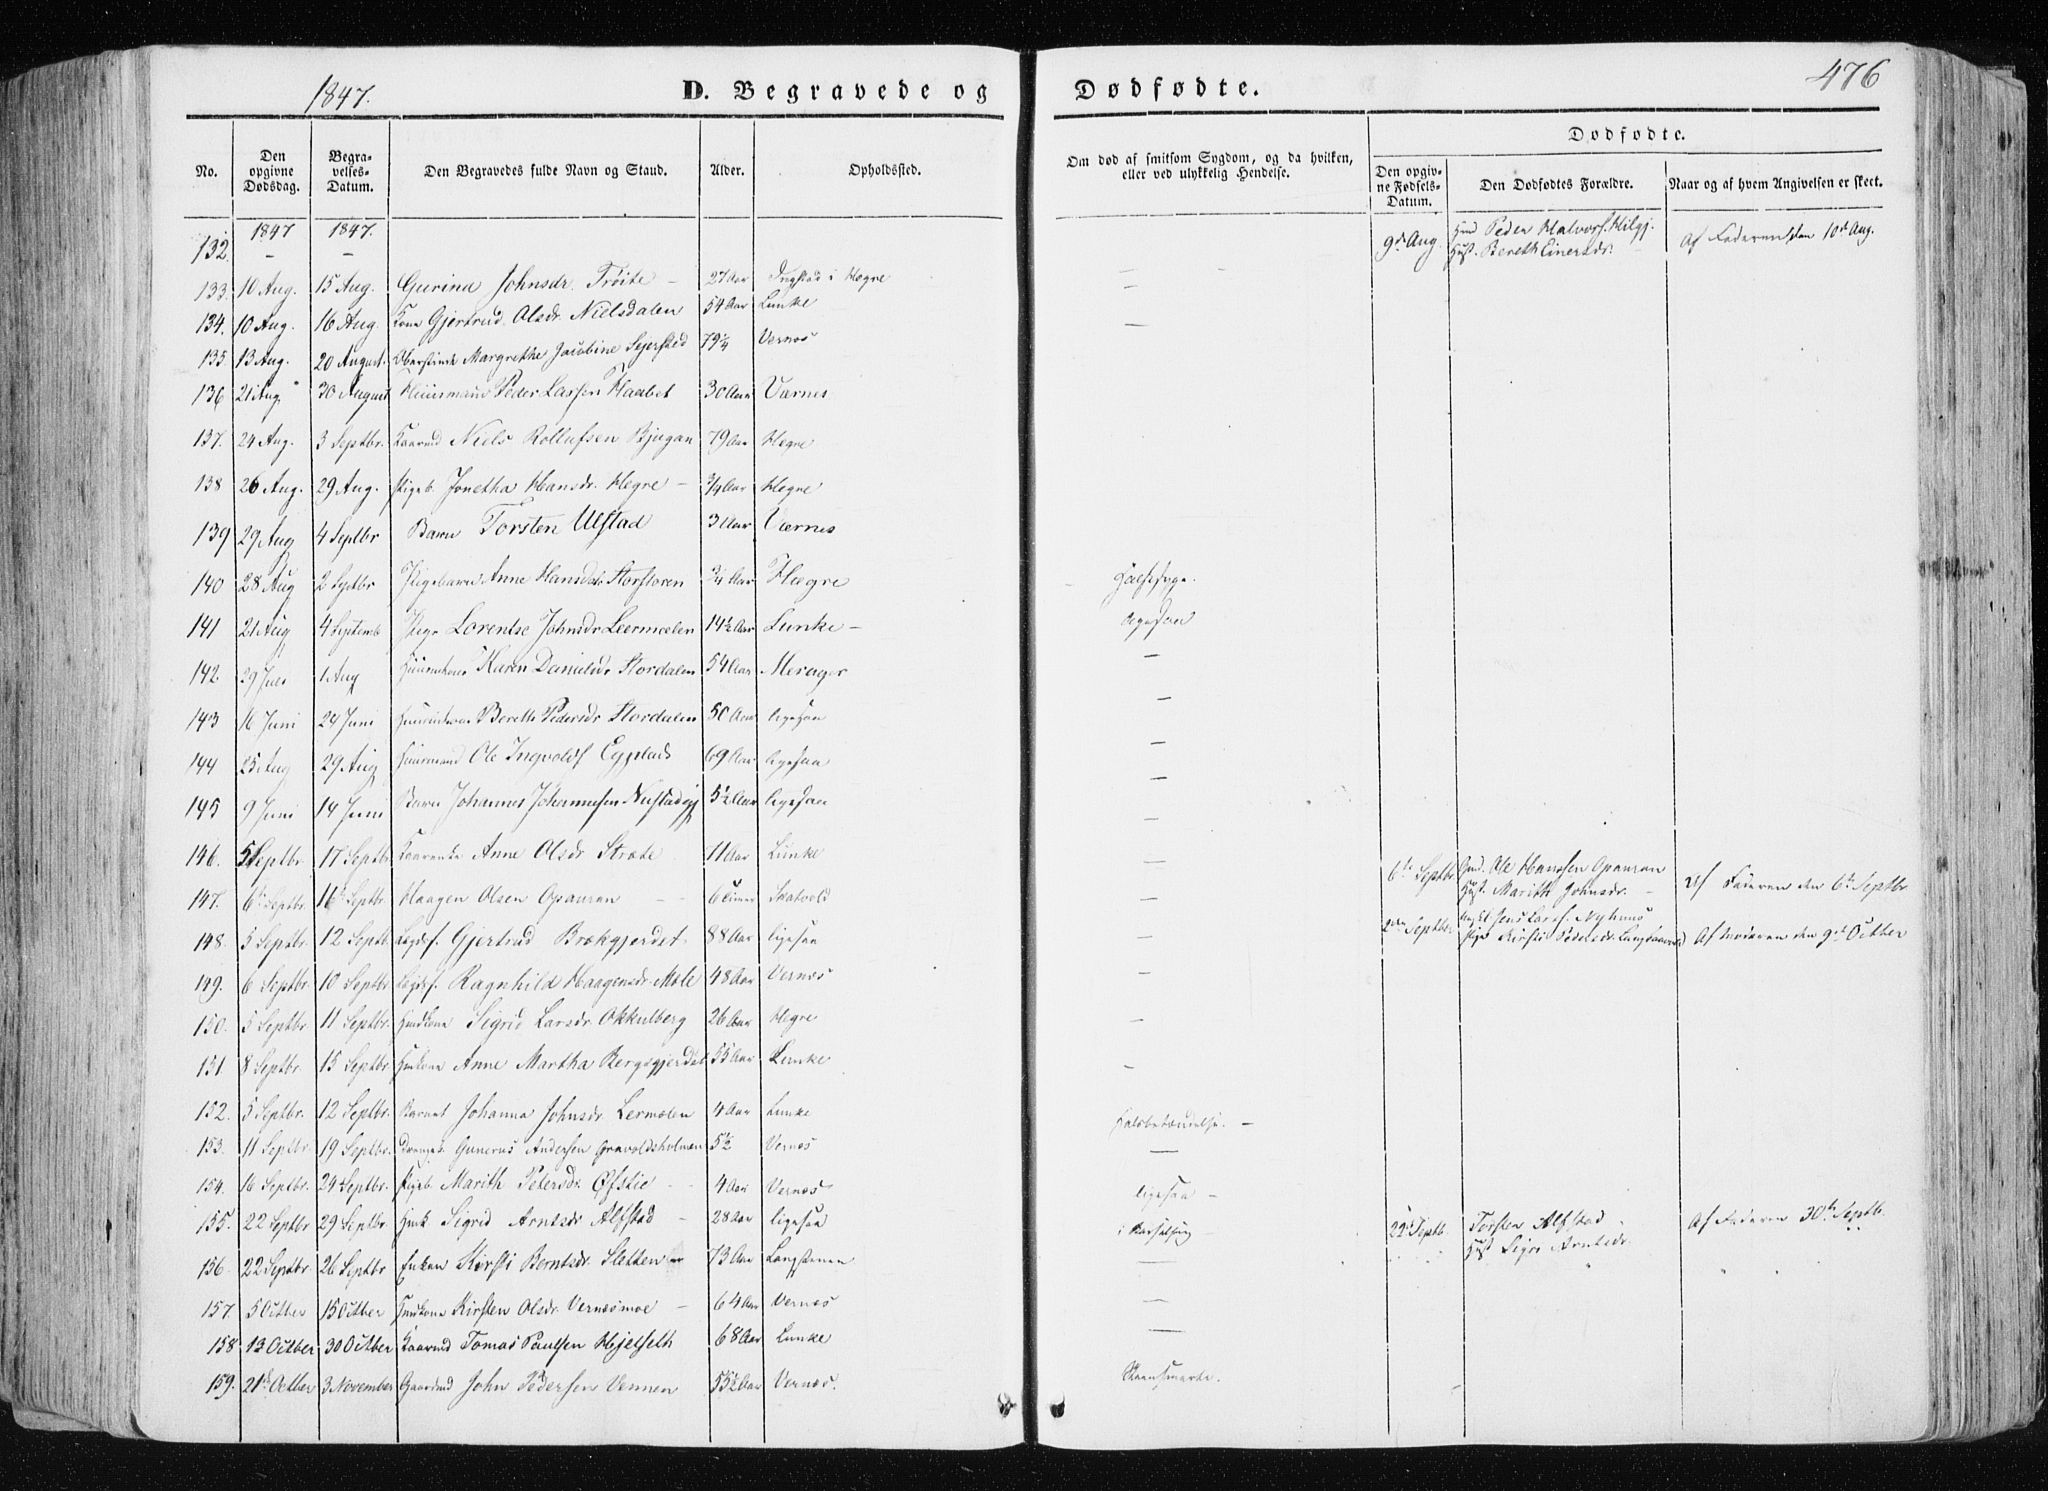 1847.
D. Begravede og Dødfødte.
476
No.
Den opgivne Dødsdag.
Begravelses-Datum.
Den Begravedes fulde Navn og Stand.
Alder.
Opholdssted.
Om død af smitsom Sygdom, og da hvilken, eller ved ulykkelig Hendelse.
Dødfødte.
Den opgivne Fødsels-Datum.
Den Dødfødtes Forældre.
Naar og af hvem Angivelsen er skeet.
1847 1847.
132. – – 9de Aug. Peder Halvors. Hilgj. Af Faderen den 10de Aug.
Hust. Bereth Einersdr.
133. 10 Aug. 15 Aug. Gurina Johnsdr. Trøite – 27 Aar Ingstad i Hegre –
134. 10 Aug. 16 Aug. Kone Gjertrud Olsdr. Nielsdalen 54 Aar Lunke –
135. 13 Aug. 20 August. Margrethe Jacobine Sejersted 79¼ Vernes –
136 21 Aug 30 August Huusmand Peder Larsen Haabet 30 Aar Værnes
137. 24 Aug. 3 Septbr. Kaarmd Niels Rollufsen Bjugan 79 Aar Hegre
138 26 Aug. 29 Aug. Pigeb. Jonetha Hansdr. Hegre – ¾ Aar Hegre
139 29 Aug 4 Septbr Barn Torsten Ulstad 3 Aar Værnes
140 28 Aug 2 Septbr Pigebarn Anne Hansdr ¾ Aar Hægre Halssyge.
141 21 Aug 4 Septemb Pige Lorentse Johnsdr Leermælen 14½ Aar Lunke – ligesaa
142. 29 Juli 1 Aug Karen Danielsdr Stordalen 54 Aar Merager –
143 16 Juni 24 Juni Bereth Pedersdr Stordalen 50 Aar ligesaa –
144 25 Aug 29 Aug Huusmand Ole Ingvolds. Egplads 69 Aar ligesaa –
145 9 Juni 14 Juni Barn Johannes Johannesen 5½ Aar ligesaa –
146. 5 Septbr 17 Septbr Anne Olsdr Stræte 71 Aar Lunke –
147. 6te Septbr. 16de Septbr. Haagen Olsen Opauran 6 Skatvold – 6te Septbr. Ole Hanssen Opauran Af Faderen den 6te Septbr
Hust. Marith Johnsdr. –
148. 5 Septbr. 12 Septb. Lægdsl. Gjertrud Brækgjerdet 88 Aar ligesaa – Septber Lars. Nyhuus Af Moderen den 9de Octber
Pige Kirsti Pedersdr.
149. 6 Septbr. 10 Septbr. Lægdsl. Ragnhild Haagensdr. Mæle 48 Aar Vernes –
150. 5 Septbr. 11 Septbr. Huskone Sigrid Larsdr. Okkulberg 26 Aar Hegre –
151. 8 Septbr. 15 Septbr. Huskone Anne Martha Bergsgjerdet 55 Aar Lunke –
152. 5 Septbr. 12 Septbr. Barnet Johanna Johnsdr. Lermælen 4 Aar Lunke Halsbetændelse. –
153. 11 Septbr. 19 Septbr. Drengeb. Gunerus Andersen 5½ Vernes –
154. 16 Septbr. 24 Septbr. Pigeb Marith Petersdr. Øfstie – 4 Aar Vernes ligesaa –
155. 22 Septbr 29 Septbr. Husk Sigrid Arntsdr. Alfstad – 28 Aar ligesaa i Barselseng 22 Septb. Torsten Alfstad Af Faderen 30te Septb.
Hust Sigri Arntsdr.
156. 22 Septbr 26 Septbr Enken Kirsti Berntsdr. Sletten 73 Aar Langstenen –
157 5 Octber 15 Octber Huskone Kirsten Olsdr. Vernesmoe – 64 Aar Vernes –
158 13 Octber 30 Octber Kaarmd Tomas Paulsen Hjelseth 68 Aar Lunke –
159. 21de Octber 3 November Gaardmd John Pedersen Vennen 55½ Aar Vernes.